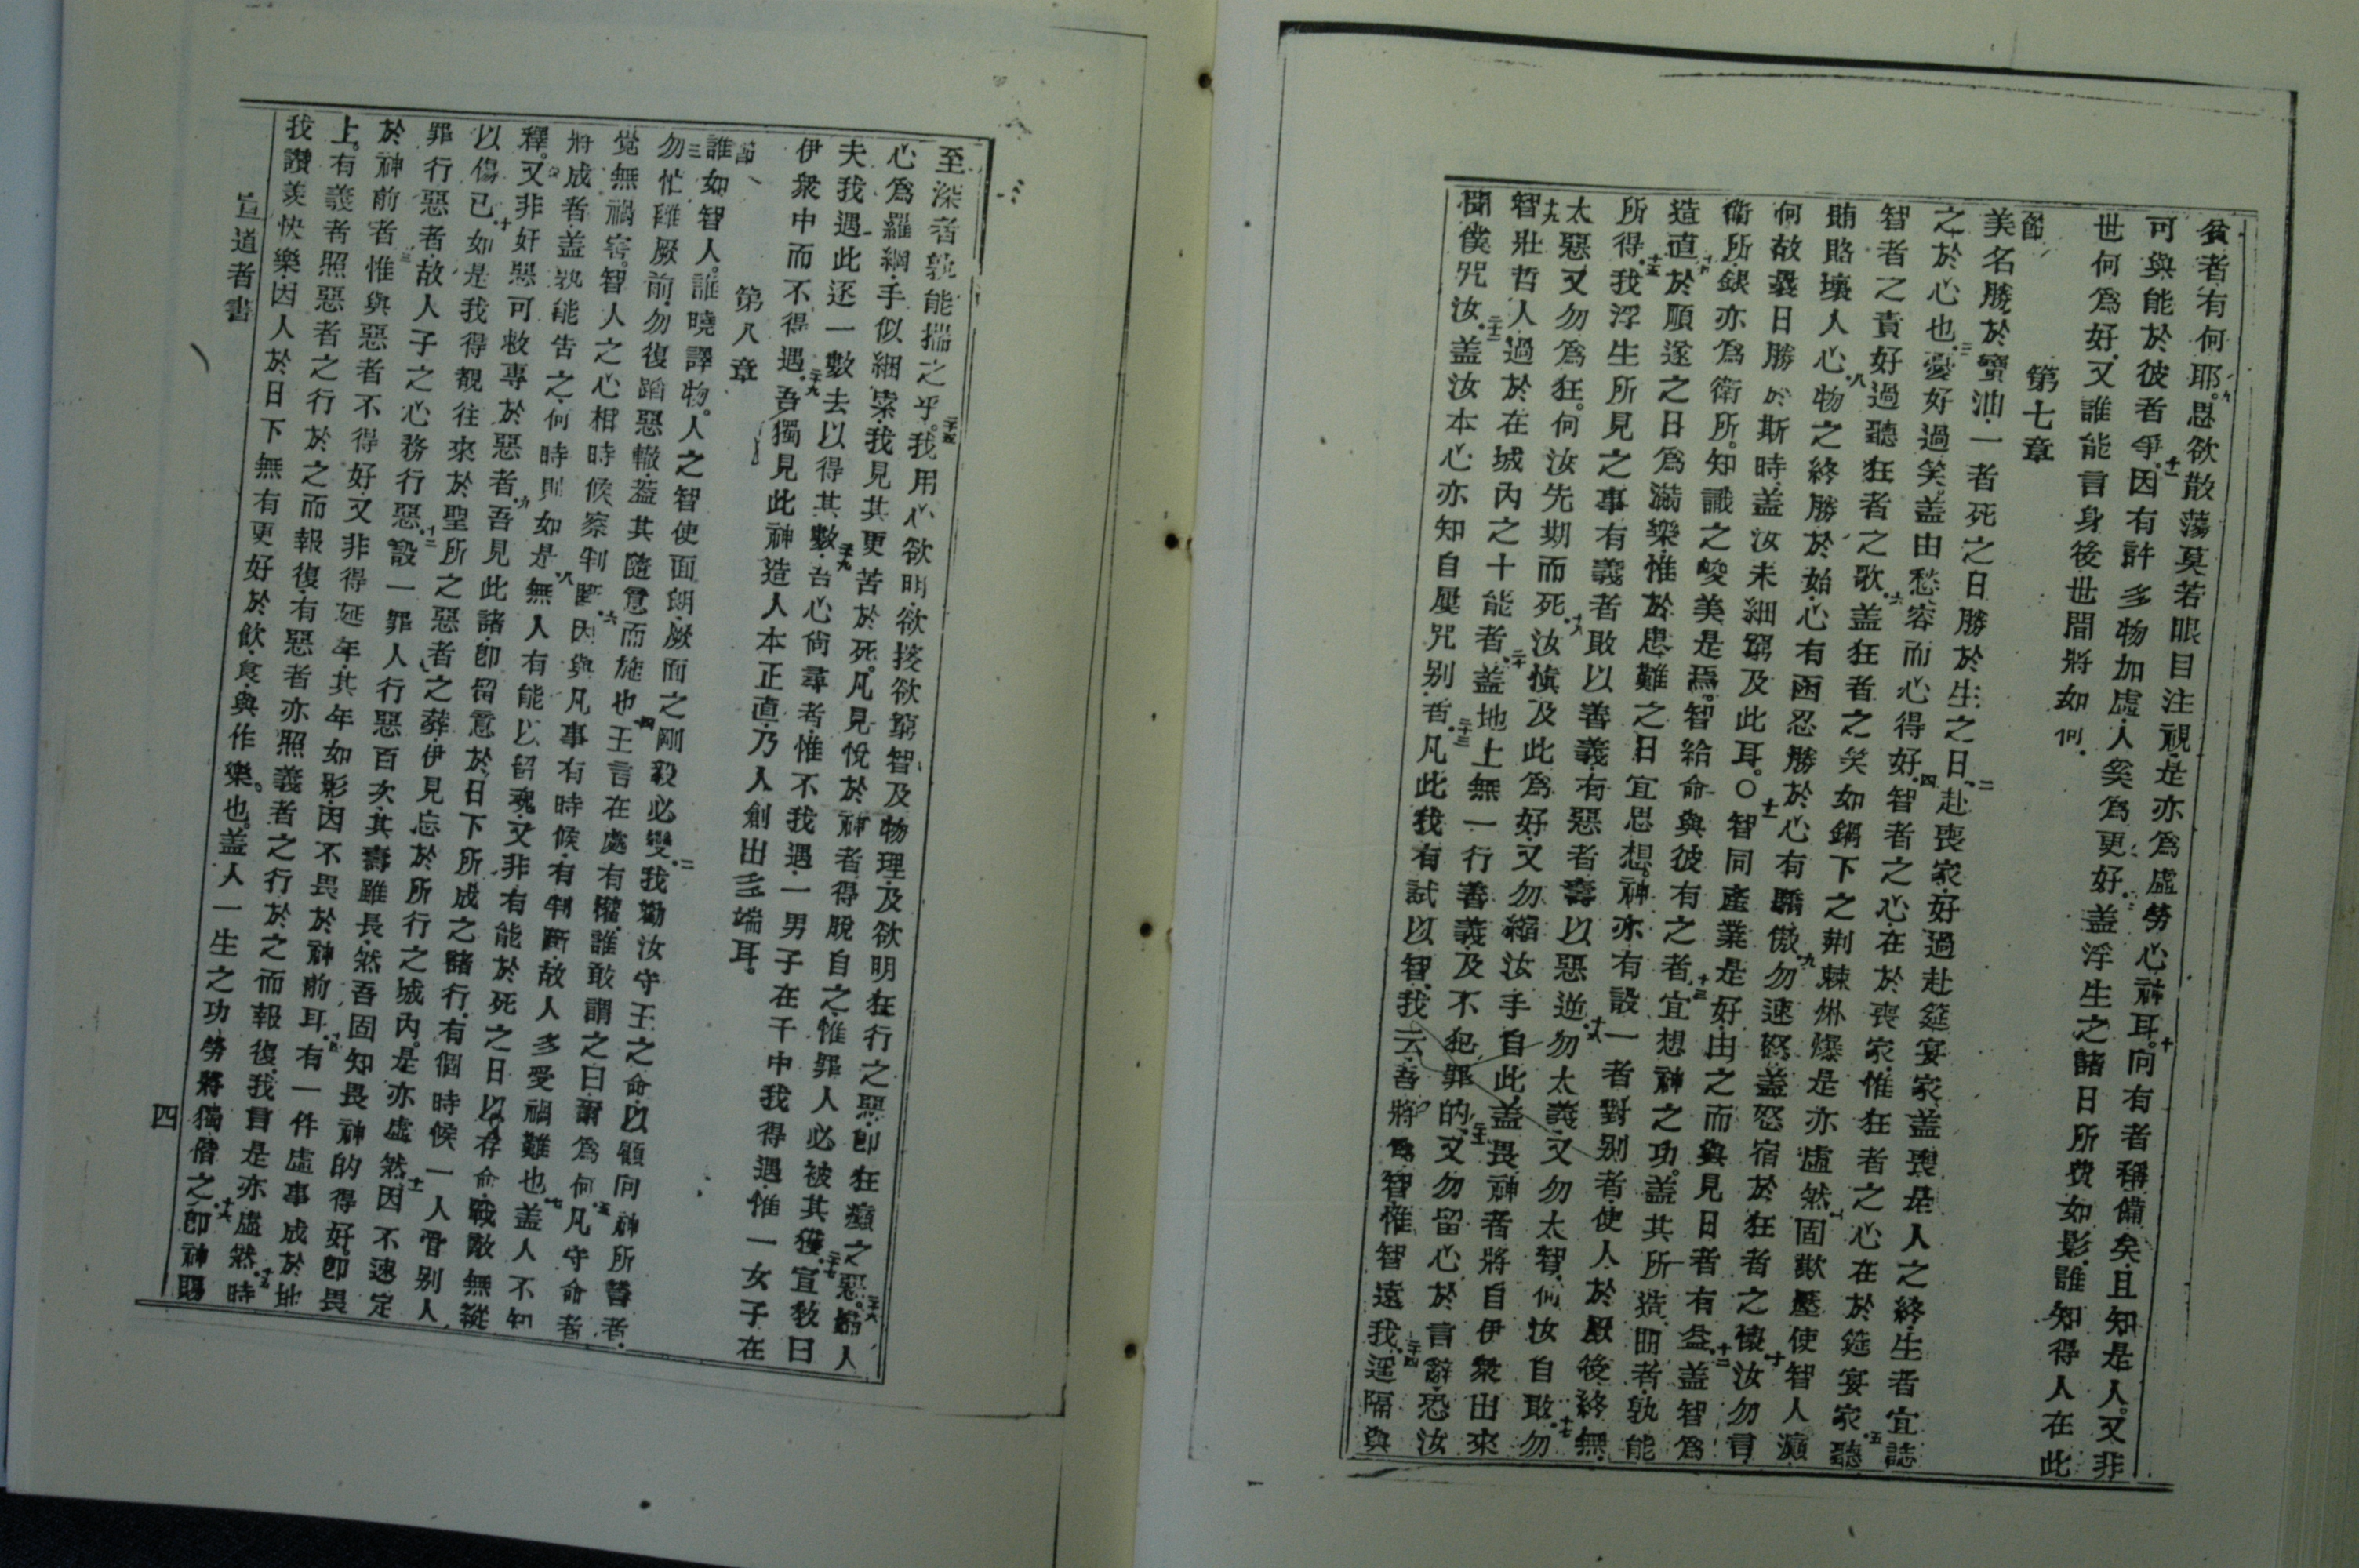 貧者有何耶。九思欲散蕩莫若眼目注視是亦爲虛勞心神耳。十向有者稱備矣且知是人又非
可與能於彼者爭。十一因有許多物加虛人奚爲更好。十二蓋浮生之諸日所費如影誰知得人在此
世何爲好又誰能言身後世間將如何
第七章
節
美名勝於寶油一者死之日勝於生之日。二赴喪家好過赴筵宴家蓋喪是人之終生者宜誌
之於心也。三憂好過笑蓋由愁容而心得好。四智者之心在於喪家惟狂者之心在於筵宴家。五聽
智者之責好過聽狂者之歌。六蓋狂者之笑如鍋下之荆棘烞爆是亦虛然。七固欺壓使智人癲
賄賂壞人心。八物之終勝於始心有函忍勝於心有驕傲。九勿速怒蓋怒宿於狂者之懷。十汝勿言
何故曩日勝於斯時蓋汝未細窮及此耳。〇十一智同產業是好由之而與見日者有益。十二蓋智爲
衞所銀亦爲衞所。知識之峻美是焉。智給命與彼有之者。十三宜想神之功蓋其所造曲者孰能
造直。十四於順遂之日爲滿樂惟於患難之日宜思想。神亦有設一者對别者使人於厥後終無
所得。十五我浮生所見之事有義者敗以善義有惡者壽以惡逆。十六勿太義又勿太智何汝自敗。十七勿
太惡又勿爲狂。何汝先期而死。十八汝愼及此爲好又勿縮汝手自此蓋畏神者將自伊衆出來
十九智壯哲人過於在城內之十能者。二十蓋地上無一行善義及不犯罪的。二十一又勿留心於言辭恐汝
聞僕咒汝。二十二蓋汝本心亦知自屢咒别者。二十三凡此我有試以智我云吾將爲智惟智遠我。二十四遥隔與
至深者孰能揣之乎。二十五我用心欲明欲搜欲窮智及物理及欲明狂行之惡卽狂癲之惡。二十六婦人
心爲羅網手似綑索我見其更苦於死。凡見悅於神者得脫自之惟罪人必被其獲。二十七宣敎曰
夫我遇此逐一數去以得其數。二十八吾心尚尋者惟不我遇一男子在千中我得遇惟一女子在
伊衆中而不得遇。二十九吾獨見此神造人本正直乃人創出多端耳。
第八章
節
誰如智人。誰曉譯物。人之智使面朗厥面之剛毅必變。二我勸汝守王之命以顧向神所誓者。
三勿忙離厥前勿復蹈惡轍蓋其隨意而施也。四王言在處有權誰敢謂之曰爾爲何。五凡守命者
覺無禍害。智人之心相時候察判斷。六因與凡事有時候有判斷故人多受禍難也。七蓋人不知
將成者蓋孰能吿之何時則如是。八無人有能以留魂又非有能於死之日以存命戰敵無蹤
釋。又非奸惡可救專於惡者。九吾見此諸卽留意於日下所成之諸行有個時候一人管别人
以傷己。十如是我得覩往來於聖所之惡者之葬伊見忘於所行之城內。是亦虛然。十一因不速定
罪行惡者故人子之心務行惡。十二設一罪人行惡百次其壽雖長然吾固知畏神的得好卽畏
於神前者。十三惟與惡者不得好又非得延年其年如影因不畏於神前耳。十四有一件虛事成於地
上。有義者照惡者之行於之而報復有惡者亦照義者之行於之而報復我言是亦虛然。十五時
我讚羨快樂因人於日下無有更好於飲食與作樂也。蓋人一生之功勞將獨偕之。十六卽神賜
宣道者書
四